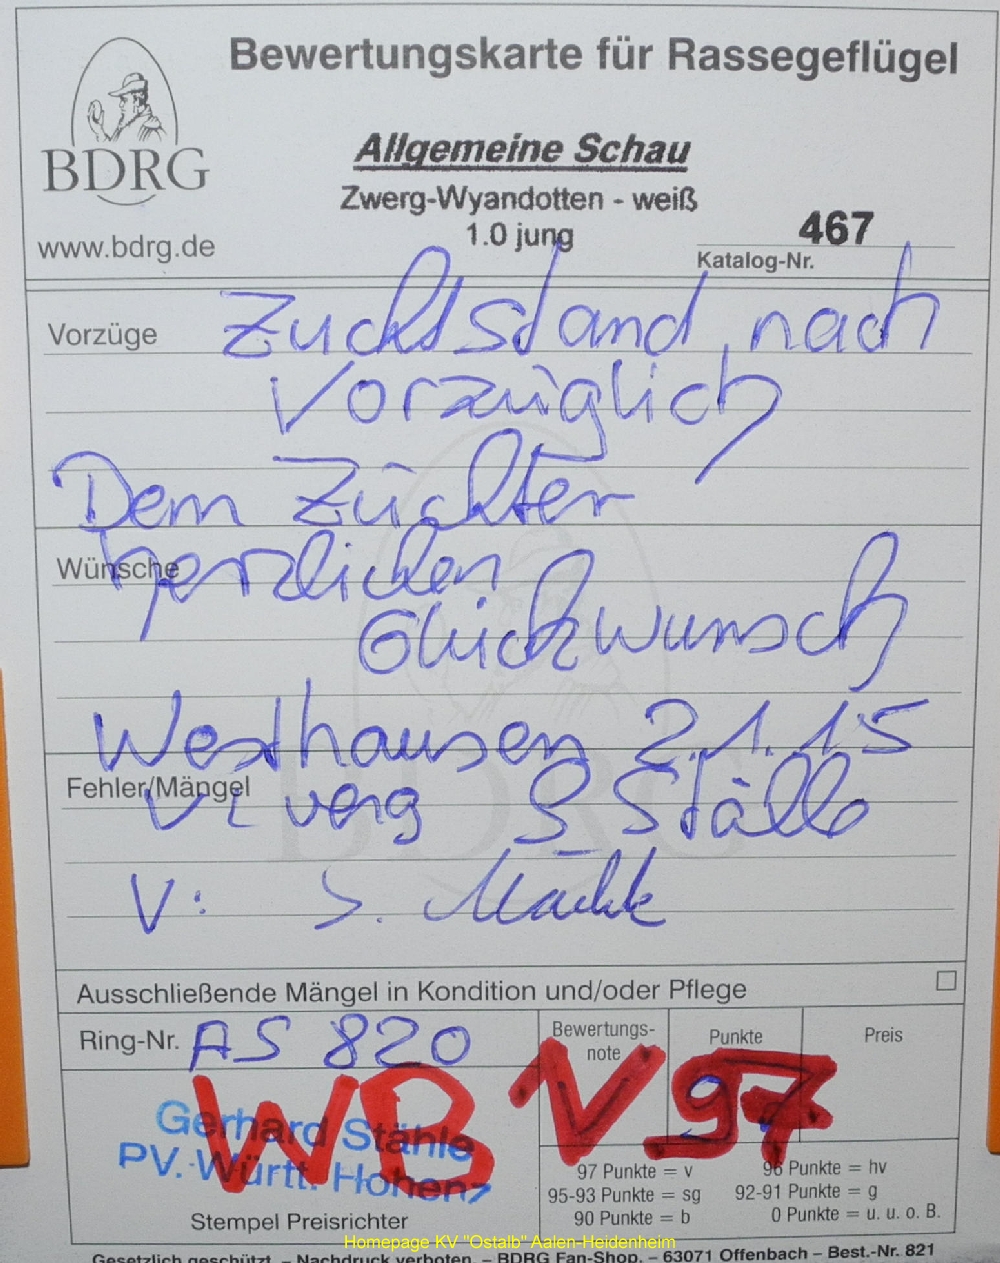 Bewertungskarte für Rassegeflügel
BDRG
www.bdrg.de
Allgemeine Schau
Zwerg-Wyandotten - weiß
1.0 jung
467
Katalog-Nr.
Vorzüge Zuchtstand, nach
Vorzüglich
Dem Züchter
Wünsche herzlichen
Glückwunsch
Westhausen 2.1.15
Fehler/Mängel
V:
Ausschließende Mängel in Kondition und/oder Pflege
Ring-Nr. AS 820
Bewertungs-
note
Punkte
Preis
WB V 97
Gerhard Stähle
PV.-Württ. Hohenz
Stempel Preisrichter
97 Punkte = v
96 Punkte = hv
95-93 Punkte = sg
92-91 Punkte = g
90 Punkte = b
0 Punkte = u. u. o. B.
Homepage KV "Ostalb" Aalen-Heidenheim
Gesetzlich geschützt. – Nachdruck verboten. – BDRG Fan-Shop. – 63071 Offenbach – Best.-Nr. 821